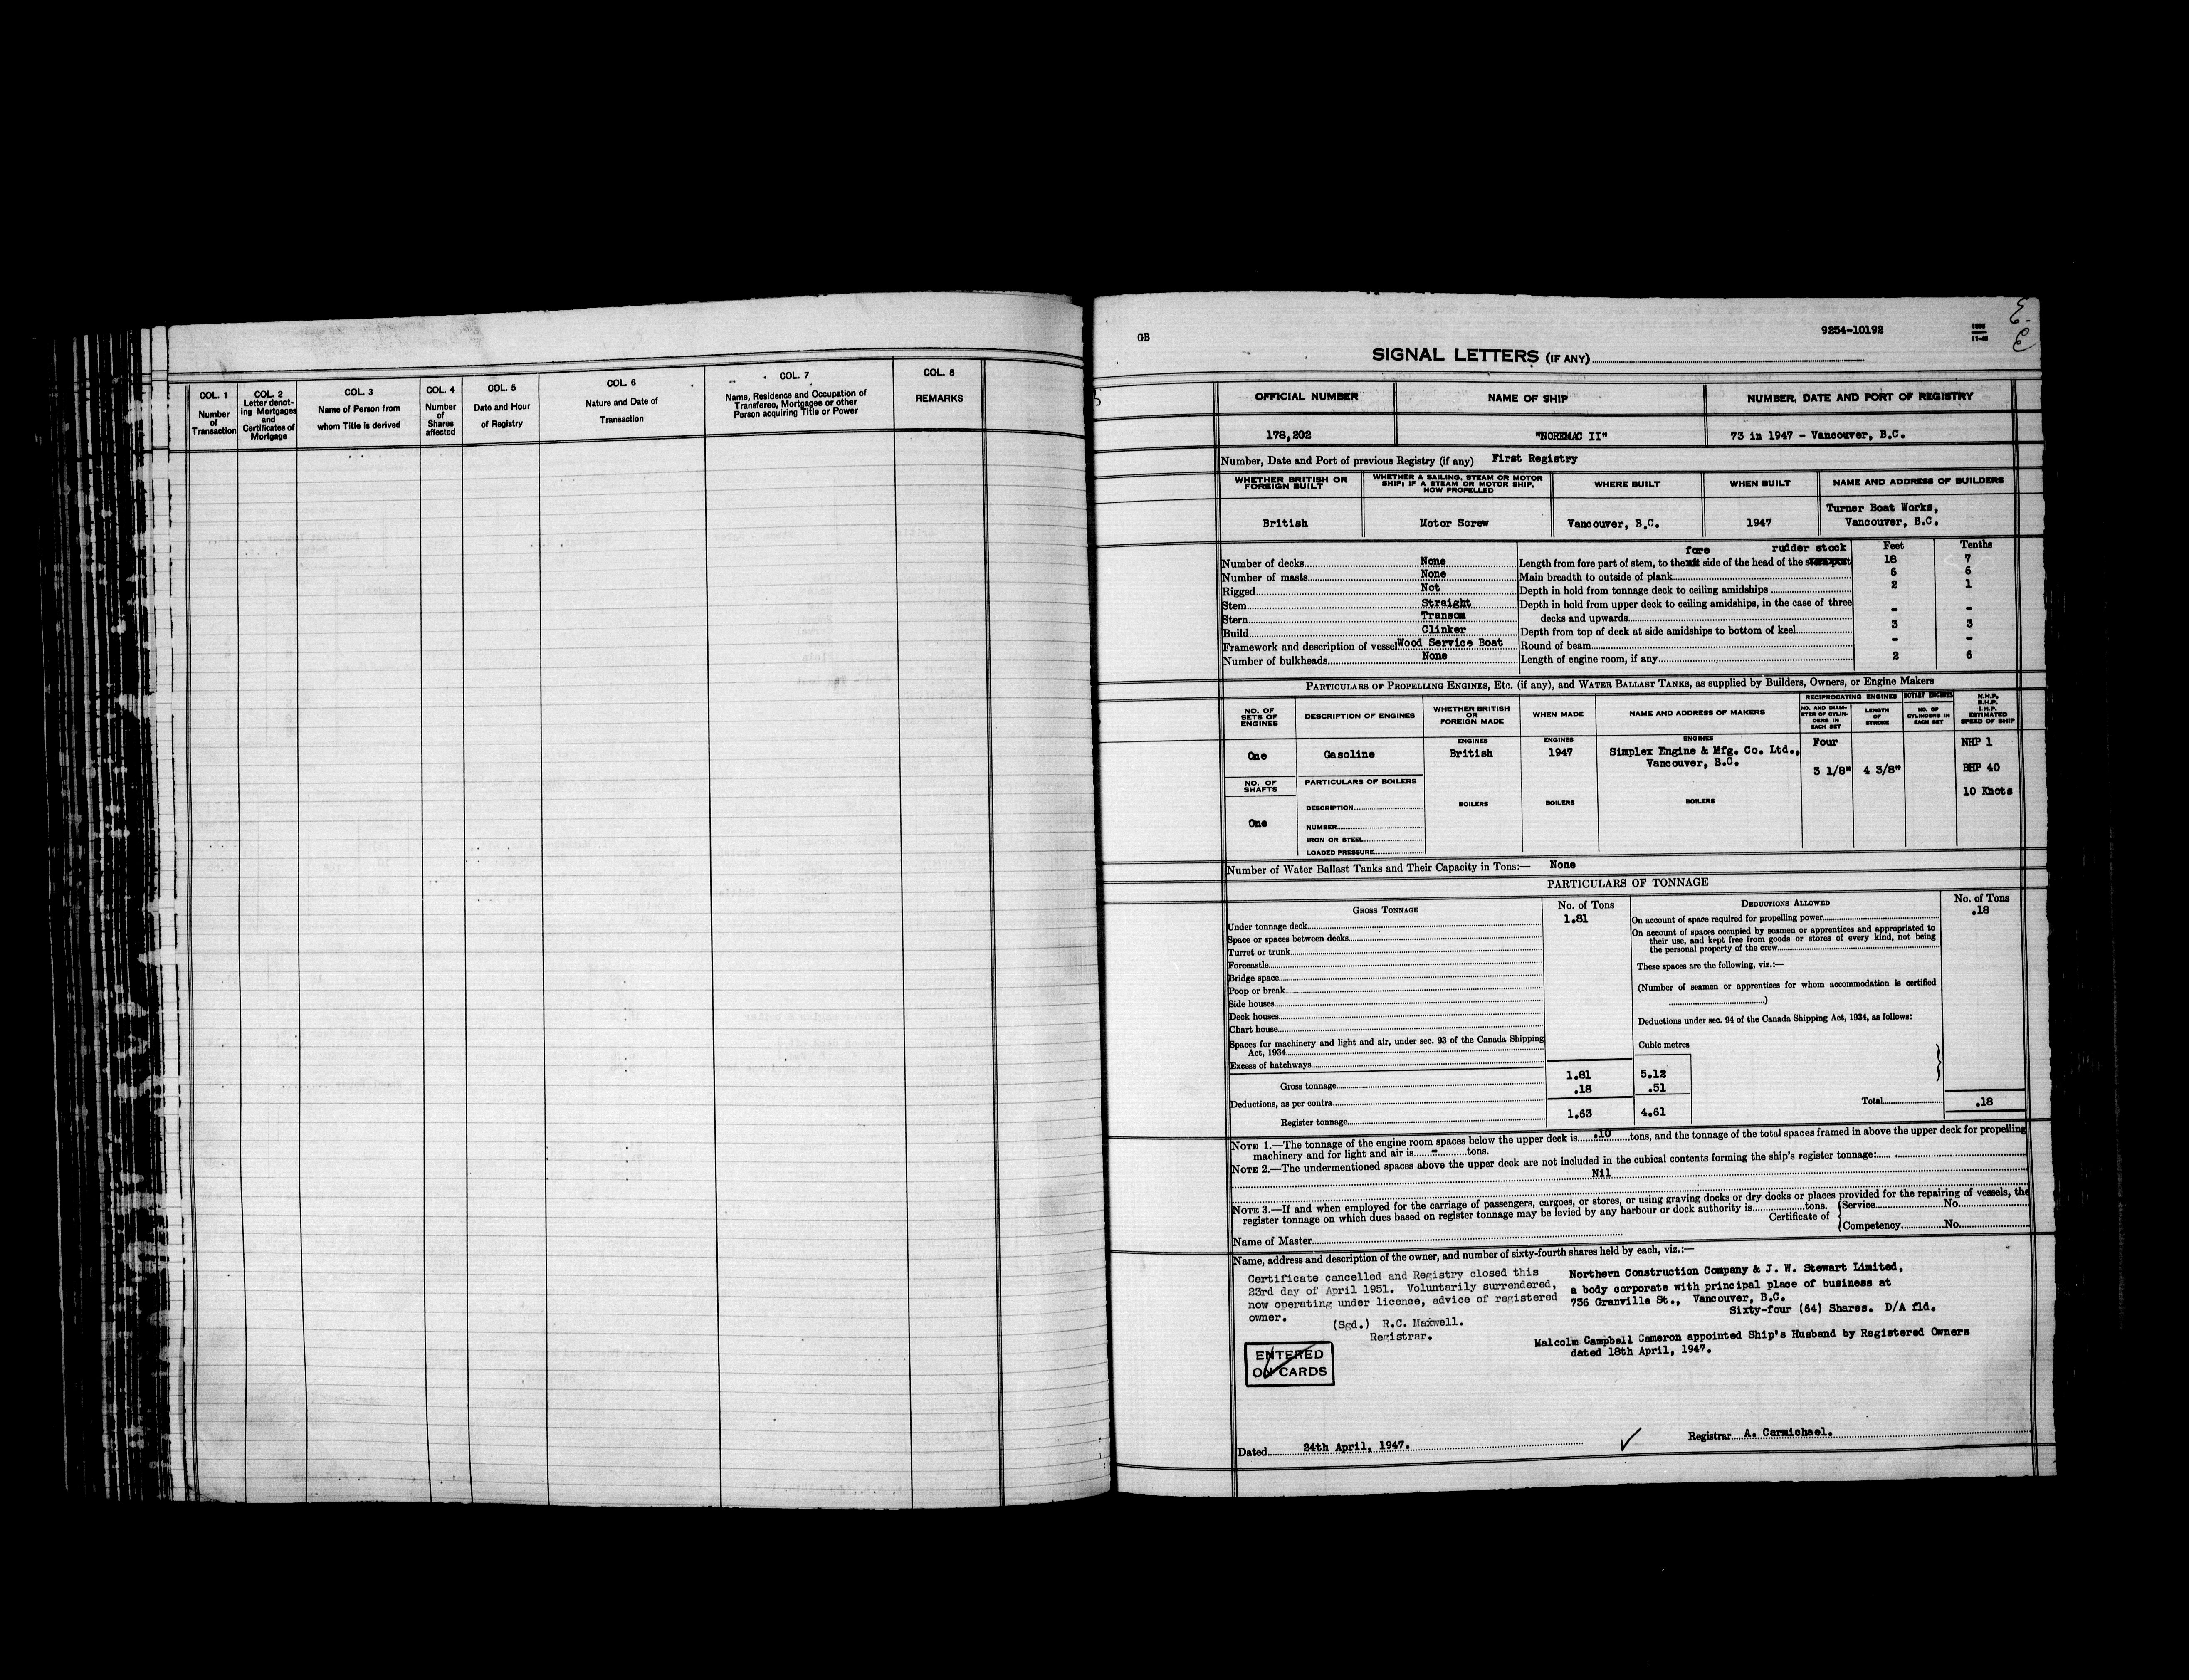 COL. 1
Number
of
Transaction
COL. 2
Letter denot-
ing Mortgages
and
Certificates of
Mortgage
COL. 3
Name of Person from
whom Title is derived
COL. 4
Number
of
Shares
affected
COL. 5
Date and Hour
of Registry
COL. 6
Nature and Date of
Transaction
COL. 7
Name, Residence and Occupation of
Transferee, Mortgagee or other
Person acquiring Title or Power
COL. 8
REMARKS
GB
9254-10192
SIGNAL LETTERS (IF ANY)
OFFICIAL NUMBER
NAME OF SHIP
NUMBER, DATE AND PORT OF REGISTRY
178,202
"NOREMAC II"
73 in 1947 - Vancouver, B.C.
Number, Date and Port of previous Registry (if any) First Registry
WHETHER BRITISH OR
FOREIGN BUILT
WHETHER A SAILING, STEAM OR MOTOR
SHIP; IF A STEAM OR MOTOR SHIP,
HOW PROPELLED
WHERE BUILT
WHEN BUILT
NAME AND ADDRESS OF BUILDERS
British
Motor Screw
Vancouver, B.C.
1947
Turner Boat Works,
Vancouver, B.C.
Number of decks None
Number of masts None
Rigged Not
Stem Straight
Stern Transom
Build Clinker
Framework and description of vessel Wood Service Boat
Number of bulkheads None
Feet Tenths
fore rudder stock
Length from fore part of stem, to the aft side of the head of the sternpost 18 7
Main breadth to outside of plank 6 6
Depth in hold from tonnage deck to ceiling amidships 2 1
Depth in hold from upper deck to ceiling amidships, in the case of three
decks and upwards - -
Depth from top of deck at side amidships to bottom of keel 3 3
Round of beam - -
Length of engine room, if any 2 6
PARTICULARS OF PROPELLING ENGINES, ETC. (if any), and WATER BALLAST TANKS, as supplied by Builders, Owners, or Engine Makers
NO. OF
SETS OF
ENGINES
DESCRIPTION OF ENGINES
WHETHER BRITISH
OR
FOREIGN MADE
WHEN MADE
NAME AND ADDRESS OF MAKERS
RECIPROCATING ENGINES
NO. AND DIAM-
ETER OF CYLIN-
DERS IN
EACH SET
LENGTH
OF
STROKE
ROTARY ENGINES
NO. OF
CYLINDERS IN
EACH SET
N.H.P.
B.H.P.
I.H.P.
ESTIMATED
SPEED OF SHIP
ENGINES
ENGINES
ENGINES
One
Gasoline
British
1947
Simplex Engine & Mfg. Co. Ltd.,
Vancouver, B.C.
Four
3 1/8"
4 3/8"
NHP 1
BHP 40
10 Knots
NO. OF
SHAFTS
One
PARTICULARS OF BOILERS
DESCRIPTION
NUMBER
IRON OR STEEL
LOADED PRESSURE
BOILERS
BOILERS
BOILERS
Number of Water Ballast Tanks and Their Capacity in Tons:— None
PARTICULARS OF TONNAGE
GROSS TONNAGE
No. of Tons
Under tonnage deck 1.81
Space or spaces between decks
Turret or trunk
Forecastle
Bridge space
Poop or break
Side houses
Deck houses
Chart house
Spaces for machinery and light and air, under sec. 93 of the Canada Shipping
Act, 1934
Excess of hatchways
Cubic metres
Gross tonnage 1.81 5.12
Deductions, as per contra .18 .51
Register tonnage 1.63 4.61
DEDUCTIONS ALLOWED
No. of Tons
On account of space required for propelling power .18
On account of spaces occupied by seamen or apprentices and appropriated to
their use, and kept free from goods or stores of every kind, not being
the personal property of the crew
These spaces are the following, viz.:—
(Number of seamen or apprentices for whom accommodation is certified
)
Deductions under sec. 94 of the Canada Shipping Act, 1934, as follows:
Total .18
NOTE 1.—The tonnage of the engine room spaces below the upper deck is .10 tons, and the tonnage of the total spaces framed in above the upper deck for propelling
machinery and for light and air is - tons.
NOTE 2.—The undermentioned spaces above the upper deck are not included in the cubical contents forming the ship's register tonnage:
Nil
NOTE 3.—If and when employed for the carriage of passengers, cargoes, or stores, or using graving docks or dry docks or places provided for the repairing of vessels, the
register tonnage on which dues based on register tonnage may be levied by any harbour or dock authority is tons.
Name of Master
Certificate of
Service No.
Competency No.
Name, address and description of the owner, and number of sixty-fourth shares held by each, viz.:—
Certificate cancelled and Registry closed this
23rd day of April 1951. Voluntarily surrendered,
now operating under licence, advice of registered
owner.
(Sgd.) R.C. Maxwell.
Registrar.
Northern Construction Company & J. W. Stewart Limited,
a body corporate with principal place of business at
736 Granville St., Vancouver, B.C.
Sixty-four (64) Shares. D/A fld.
Malcolm Campbell Cameron appointed Ship's Husband by Registered Owners
dated 18th April, 1947.
ENTERED
ON CARDS
Dated 24th April, 1947.
Registrar A. Carmichael.